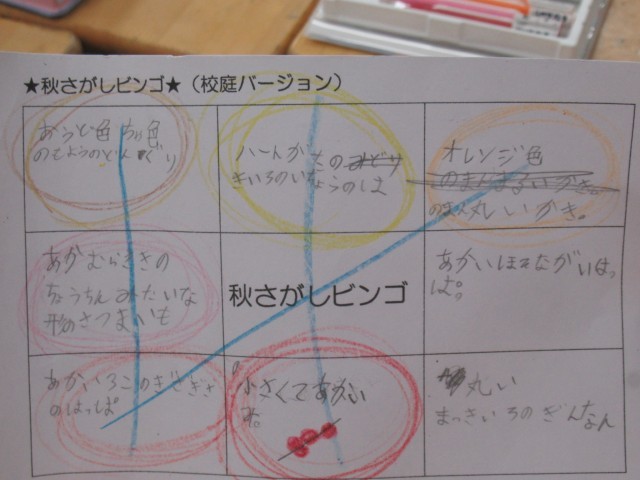 ★秋さがしビンゴ★（校庭バージョン）
おうど色 ちゃ色
のもようのどんぐり
ハートがたの
きいろのいちょうのは
オレンジ色
のまん丸いかき。
あかむらさきの
ちょうちんみたいな
形のさつまいも
秋さがしビンゴ
あかいほそながいはっ
ぱ。
あかいろこのぎざぎざ
のはっぱ
小さくてあかい
丸い
まっきいろのぎんなん